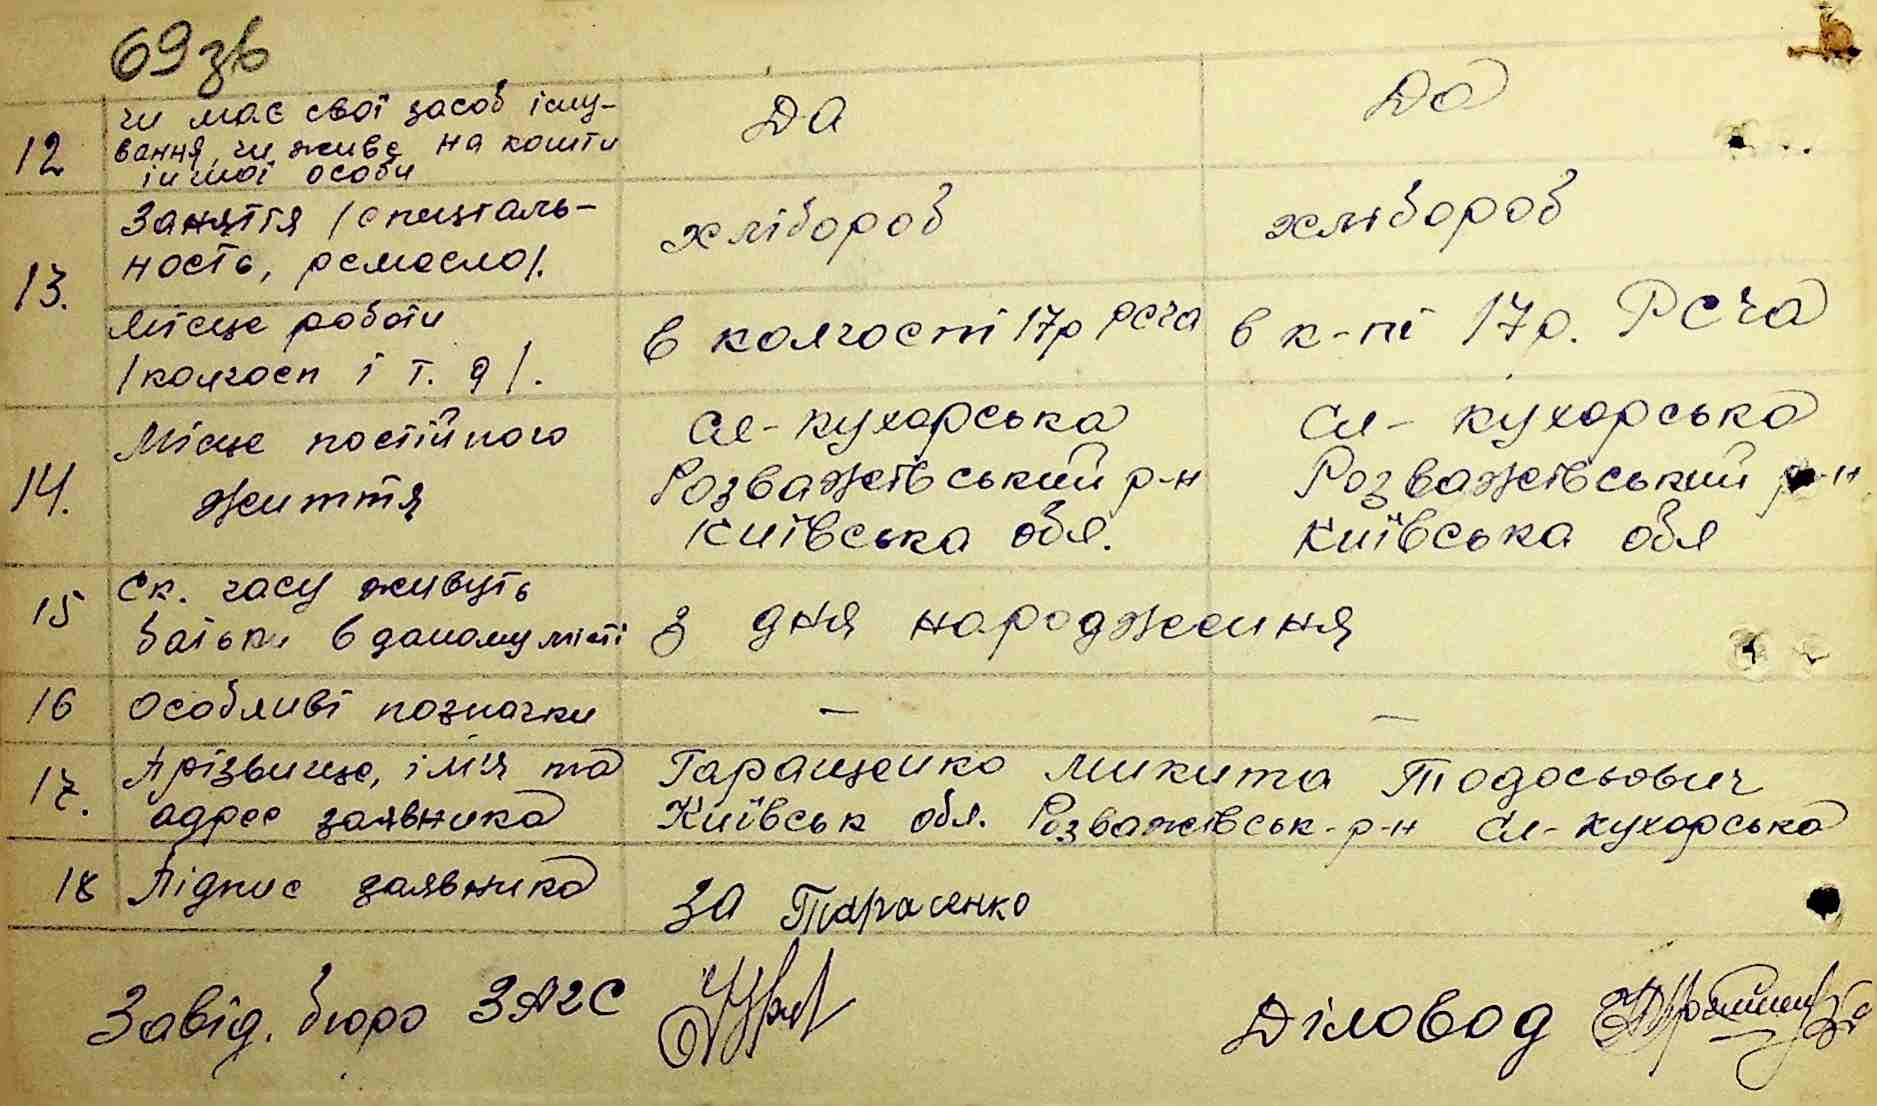 69 зв
12 чи має свої засоб існу- ДА Да
вання, чи живе на кошти
іншої особи
13. Заняття /спеціаль- хлібороб хлібороб
ность, ремесло/.
Місце роботи в колгоспі 17р РСЧА в к-пі 17р. РСЧА
/колгосп і т. д/.
14. Місце постійного Сл-кухарська Сл-кухарська
життя Розважівський р-н Розважівський р-н
Київська обл. Київська обл
15 Ск. часу живуть з дня народження
батьки в даному місті
16 Особливі позначки – –
17. Прізвище, ім'я та Гаращенко Микита Тодосьович
адрес заявника Київськ обл. Розважівськ-р-н Сл-кухарська
18 Підпис заявника За Тарасенко
Завід. бюро ЗАГС Діловод